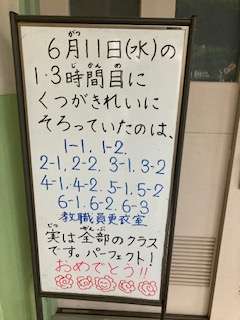 6月11日(水)の
1・3時間目に
くつがきれいに
そろっていたのは、
1-1, 1-2,
2-1, 2-2, 3-1, 3-2
4-1, 4-2, 5-1, 5-2
6-1, 6-2, 6-3
教職員更衣室
実は全部のクラス
です。パーフェクト!
おめでとう!!